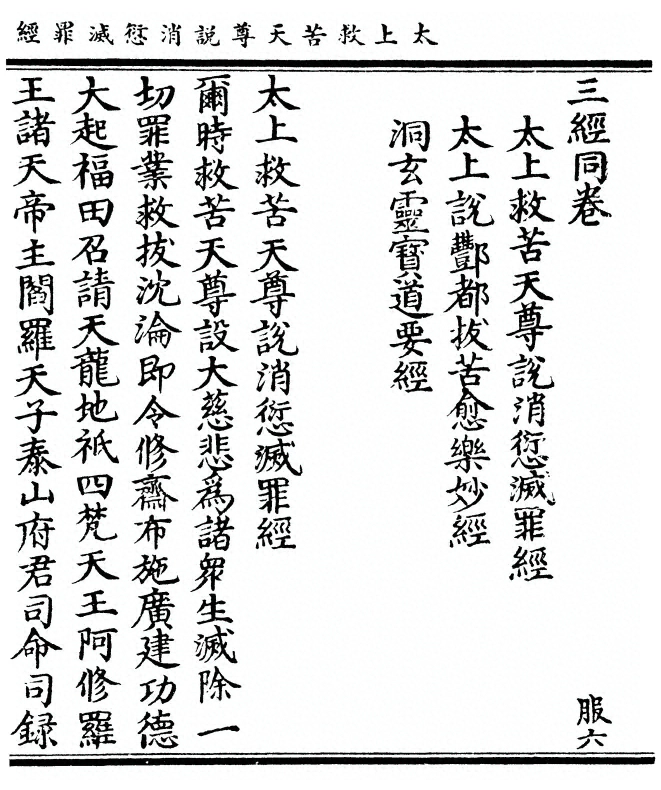 太上救苦天尊說消愆滅罪經
三經同卷
服六
太上救苦天尊說消愆滅罪經
太上說酆都拔苦愈樂妙經
洞玄靈寶道要經
太上救苦天尊說消愆滅罪經
爾時救苦天尊設大慈悲爲諸衆生滅除一
切罪業救拔沈淪即令修齋布施廣建功德
大起福田召請天龍地祇四梵天王阿修羅
王諸天帝主閻羅天子泰山府君司命司録